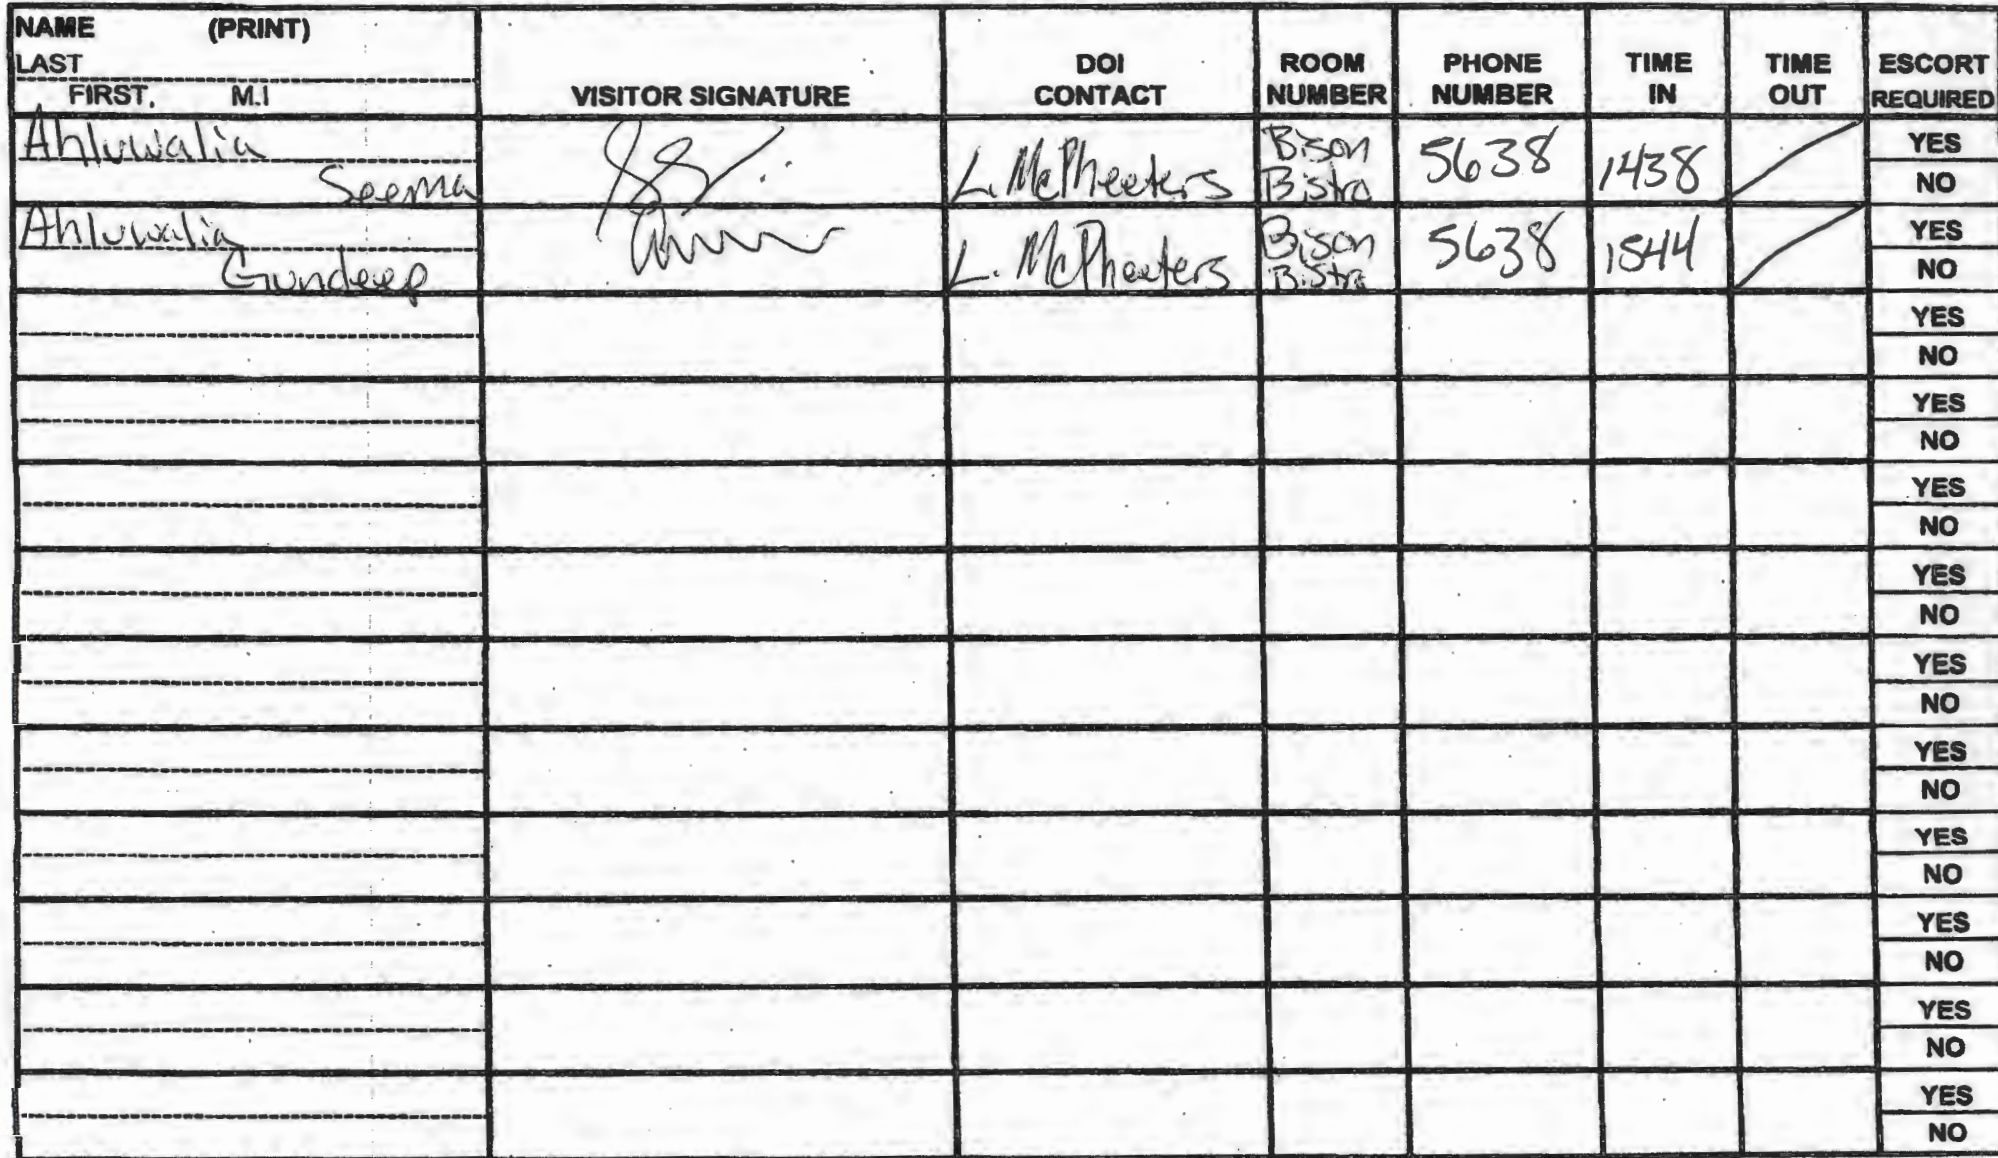 NAME (PRINT)
LAST
FIRST, M.I
VISITOR SIGNATURE
DOI CONTACT
ROOM NUMBER
PHONE NUMBER
TIME IN
TIME OUT
ESCORT REQUIRED
Ahluwalia
Seema
L. McPheeters
Bison
Bistro
5638
1438
YES
NO
Ahluwalia
Gundeep
L. McPheeters
Bison
Bistro
5638
1544
YES
NO
YES
NO
YES
NO
YES
NO
YES
NO
YES
NO
YES
NO
YES
NO
YES
NO
YES
NO
YES
NO